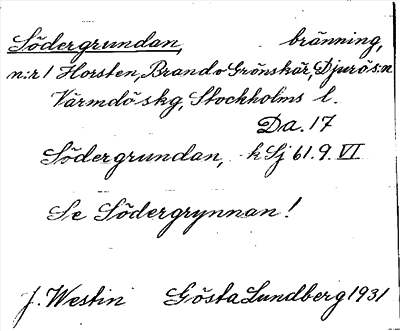 Södergrundan, bränning,
n:r 1 Horsten, Brand o Grönskär, Djurö s:n
Värmdö skg, Stockholms l.
Da. 17
Södergrundan, h Sj 61.9. VI
Se Södergrynnan!
J. Westin Gösta Lundberg 1931